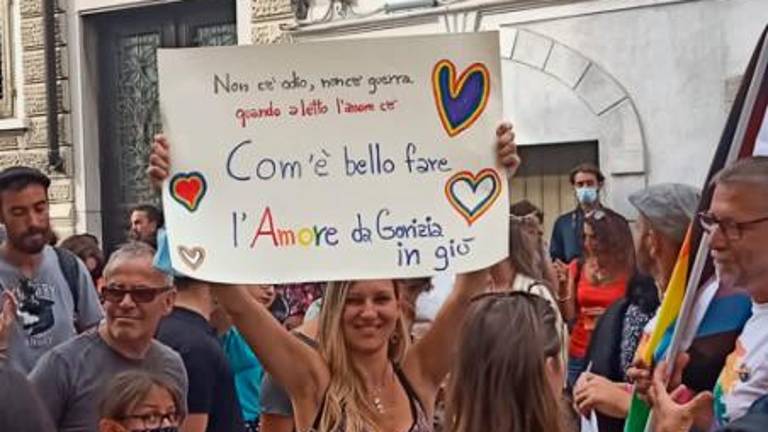 Non c'è odio, non c'è guerra
quando a letto l'amore c'è
Com'è bello fare
l'Amore da Gorizia
in giù